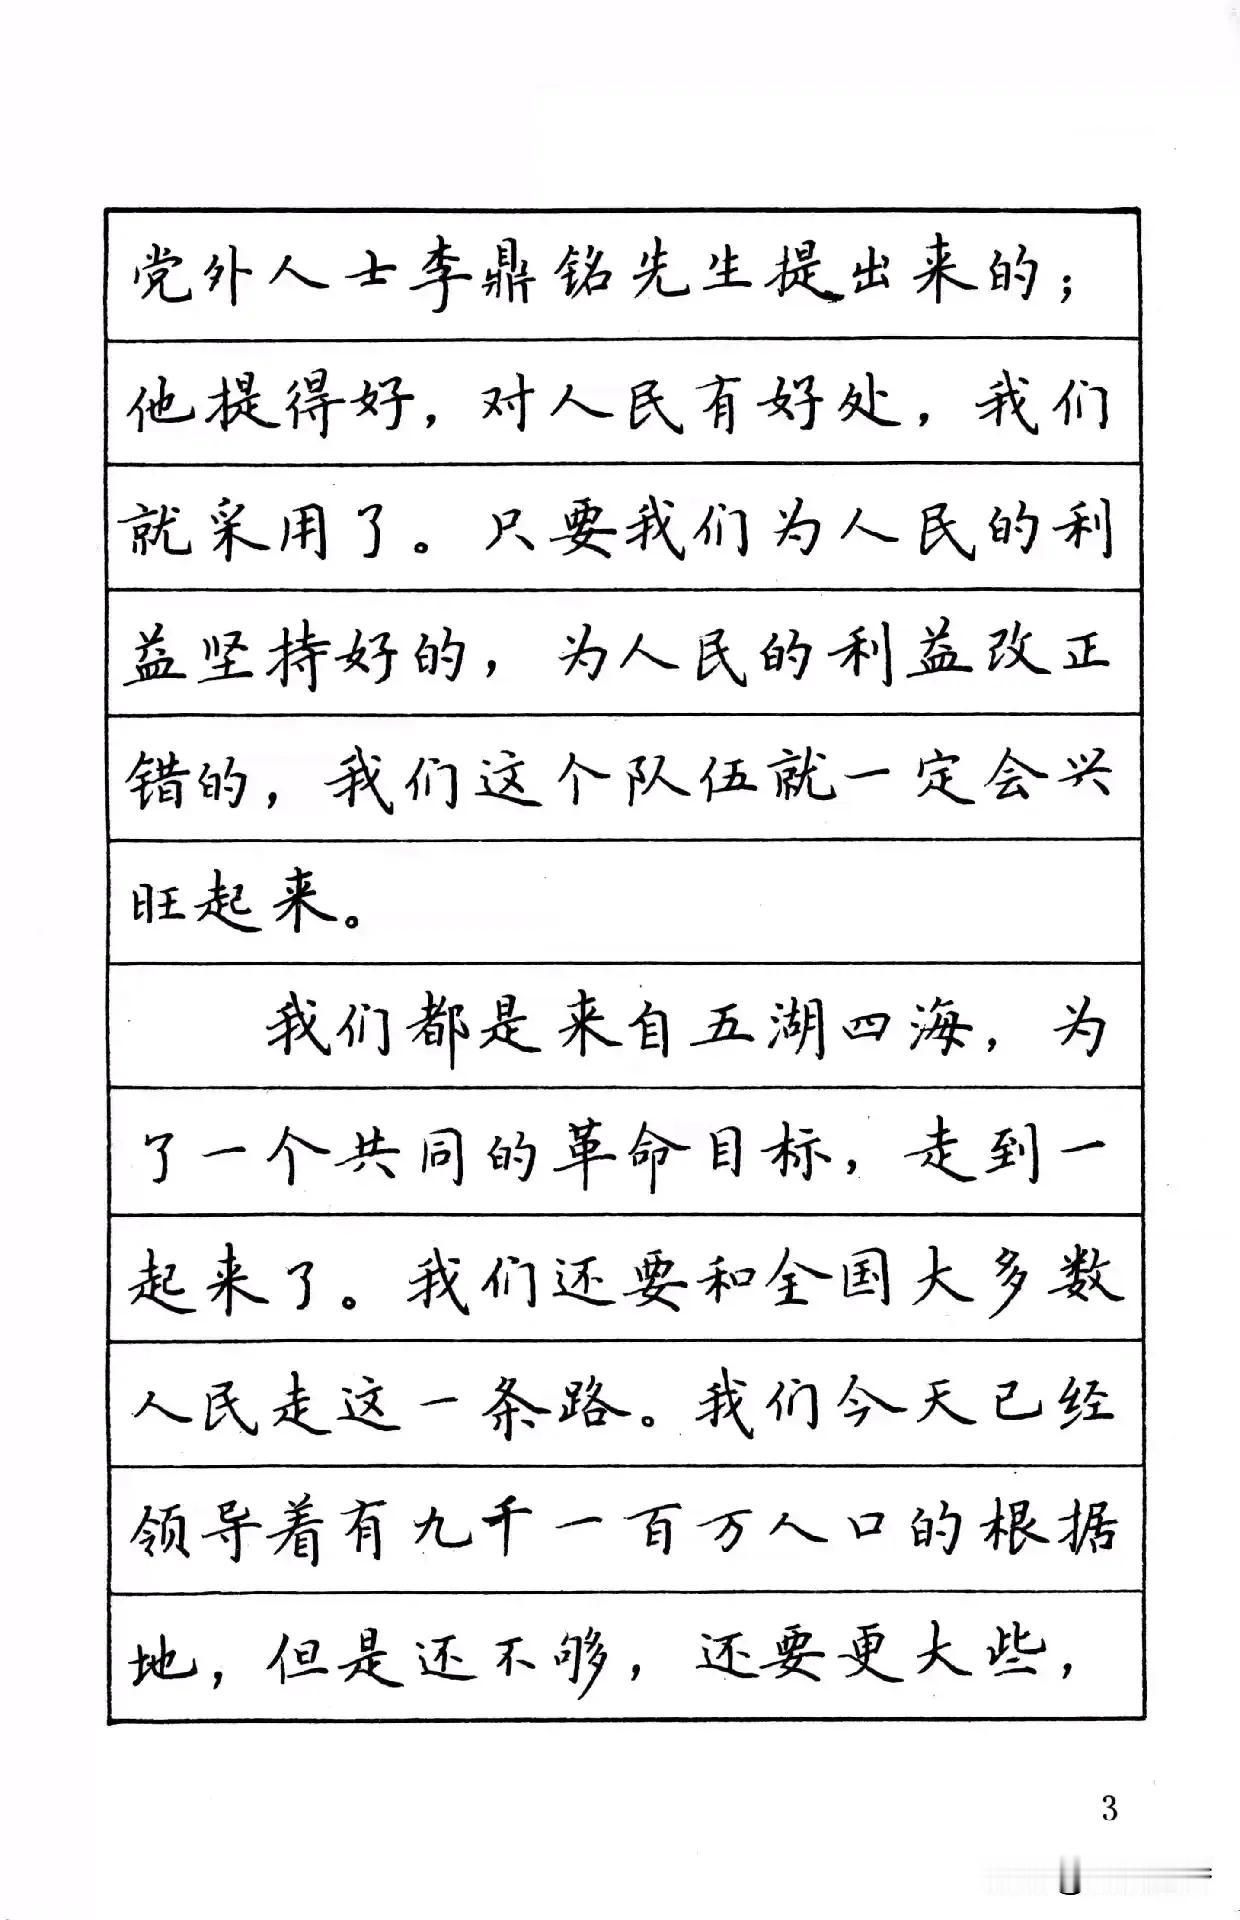 党外人士李鼎铭先生提出来的；
他提得好，对人民有好处，我们
就采用了。只要我们为人民的利
益坚持好的，为人民的利益改正
错的，我们这个队伍就一定会兴
旺起来。
我们都是来自五湖四海，为
了一个共同的革命目标，走到一
起来了。我们还要和全国大多数
人民走这一条路。我们今天已经
领导着有九千一百万人口的根据
地，但是还不够，还要更大些，
3